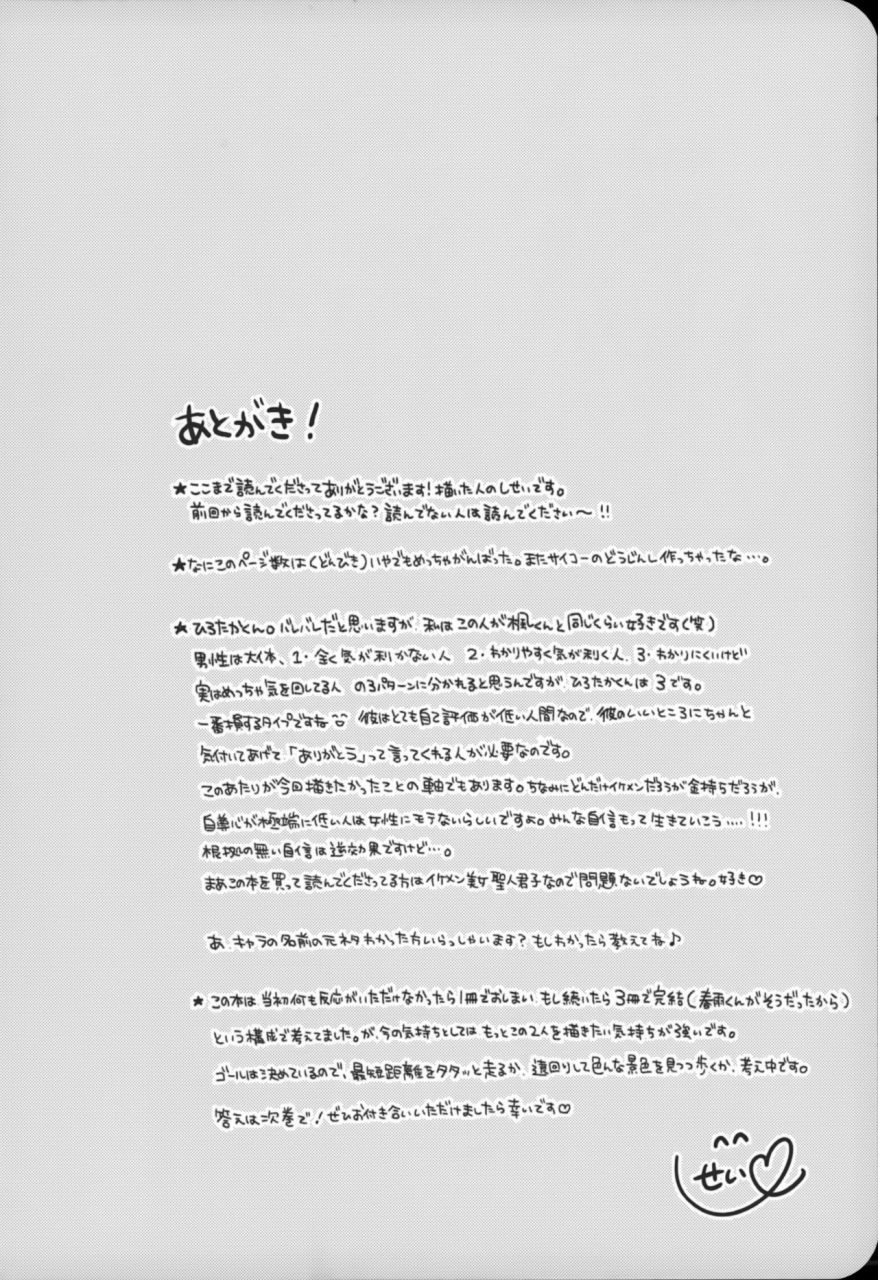 あとがき！
★ここまで読んでくださってありがとうございます！描いた人のしせいです。
前回から読んでくださってるかな？読んでない人は読んでください〜！！
★なにこのページ数は（どんびき）いやでもめっちゃがんばった。またサイコーのどうじんし作っちゃったな…。
★ひろたかくん。バレバレだと思いますが、私はこの人が楓くんと同じくらい好きです（笑）
男性は大体、1・全く気が利かない人 2・わかりやすく気が利く人、3・わかりにくいけど
実はめっちゃ気を回してる人 の3パターンに分かれると思うんですが、ひろたかくんは3です。
一番損するタイプですね 彼はとても自己評価が低い人間なので、彼のいいところにちゃんと
気付いてあげて「ありがとう」って言ってくれる人が必要なのです。
このあたりが今回描きたかったことの軸でもあります。ちなみにどんだけイケメンだろうが金持ちだろうが、
自尊心が極端に低い人は女性にモテないらしいですよ。みんな自信もって生きていこう….!!!
根拠の無い自信は逆効果ですけど…。
まあこの本を買って読んでくださってる方はイケメン美女聖人君子なので問題ないでしょうね。好き♡
あ、キャラの名前の元ネタわかった方いらっしゃいます？もしわかったら教えてね♪
★この本は当初何も反応がいただけなかったら1冊でおしまい、もし続いたら3冊で完結（春雨くんがそうだったから）
という構成で考えてました。が、今の気持ちとしてはもっとこの2人を描きたい気持ちが強いです。
ゴールは決めているので、最短距離をタタッと走るか、遠回りして色んな景色を見つつ歩くか、考え中です。
答えは次巻で！ぜひお付き合いいただけましたら幸いです♡
せい♡